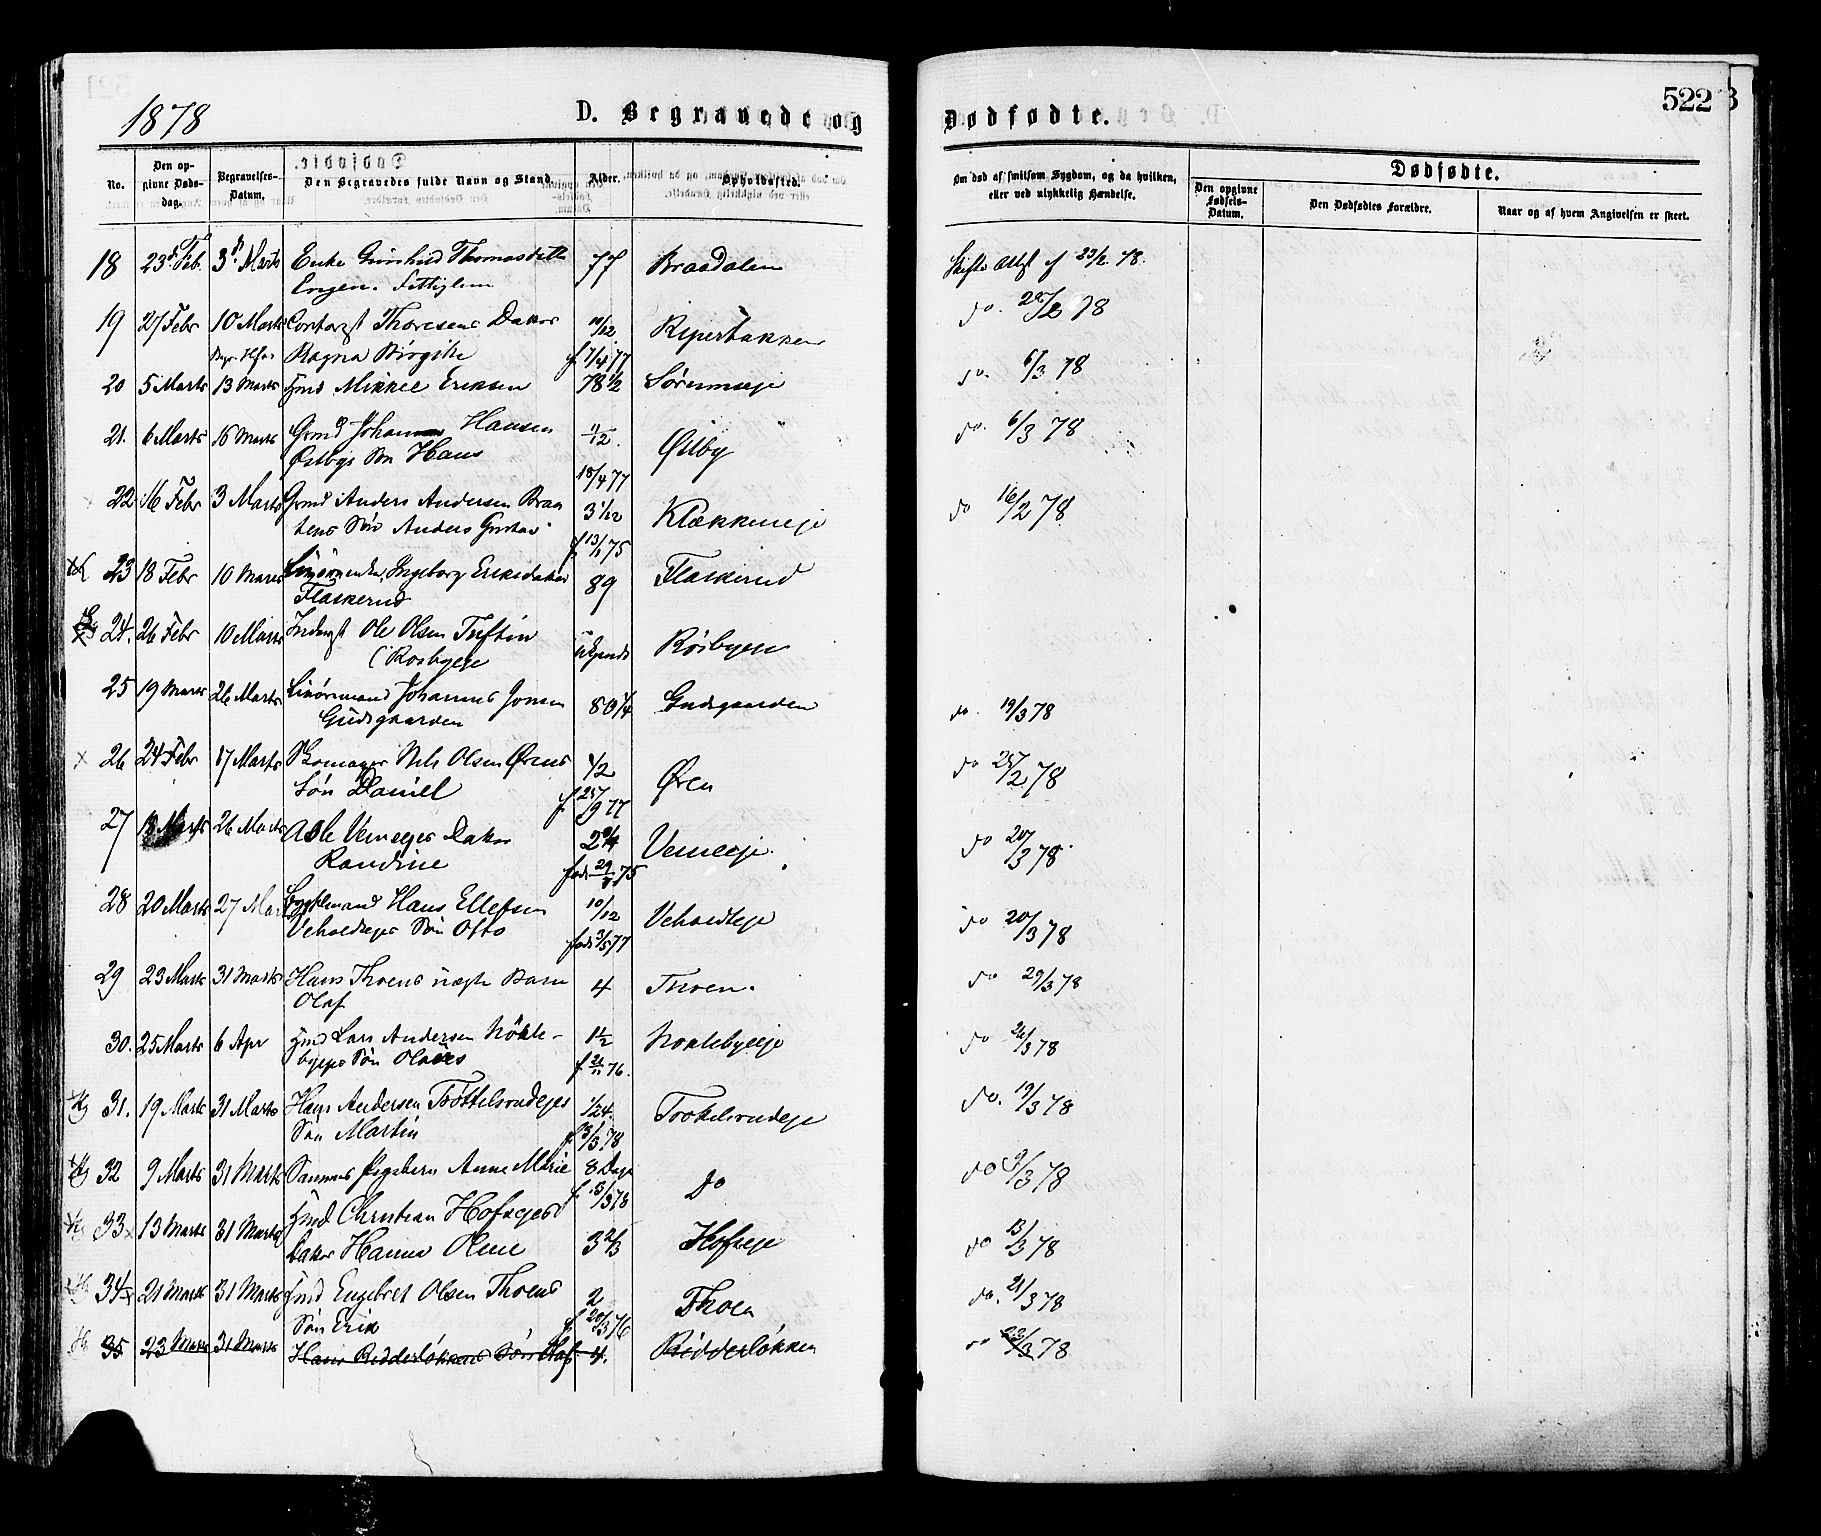 1878
D. Begravede og Dødfødte.
522
No.
Den opgivne Døds-dag.
Begravelses-Datum.
Den Begravedes fulde Navn og Stand.
Alder.
Opholdssted.
Om død af smitsom Sygdom, og da hvilken, eller ved ulykkelig Hændelse.
Dødfødte.
Den opgivne Fødsels-Datum.
Den Dødfødtes Forældre.
Naar og af hvem Angivelsen er skeet.
18 23 Feb. 3 Marts Enke Gunhild Thomasdatte 77 Braadalen Skifte Att 23/2 78.
Engen.
19 27 Febr 10 Marts Thoresens Datter 10/12 do. 78
Ragna Birgithe f. 7/4 77
20 5 Marts 13 Marts Hmd Mikkel Eriksen 78 1/2 do. 6/3 78
21. 6 Marts 16 Marts Grmd Johan Hansen 11/12. Østby do. 6/3 78
Østbys Søn Hans 18/4 77
22 16 Febr 3 Marts Grmd Anders Andersen Braa 3 1/12 Klækkeneje do 16/2 78
tens Søn Anders Gustav f. 13/1 75
23 18 Febr 10 Marts Ingeborg Eriksdatter 89 Flaskerud
Flaskerud
24. 26 Febr 10 Marts Inderst Ole Olsen Tuftin
(Rosbyeje
25 19 Marts 26 Marts Johannes Jonsen 80 1/4 Gudsgaarden do. 19/3 78
Gudsgaarden
26 24 Febr 17 Marts Skomager Nils Olsen Ørens 1/2 Øren do 25/2 78
Søn Daniel f. 25/9 77
27 18 Marts 26 Marts Datter 2 3/4 do 20/3 78
Randine født 75
28 20 Marts 27 Marts Hans Ellefsen 10/12 Veholdteje do 20/3 78
Søn Otto født 3/5 77
29 23 Marts 31 Marts Hans Thoens uægte Barn 4 Thoen. do 29/3 78
Olaf
30. 25 Marts 6 Apr Hmd Lars Andersen Nökle- 1 1/2 Noklebyeje do 26/3 78
Søn f. 76.
31. 19 Marts 31 Marts Hans Andersen Trøttelsrudejes 1/24. Trotelsrudeje do. 19/3 78
Søn Martin f. 3/3 78
32 9 Marts 31 Marts Sammes Pigebarn Anne Marie 8 Dage Do do 9/3 78
33 13 Marts 31 Marts Hmd Christian Hofsejes Hofseje do 13/3 78
Datter Hanna Oline 3 2/3
34 21 Marts 31 Marts Hmd Engebret Olsen Thoens 2 Thoen do. 21/3 78
Søn Erik f. 20/3 76
35 23 Marts 31 Marts Hans Ridderløkkens Søn Olaf 4. Ridderløkken do 23/3 78